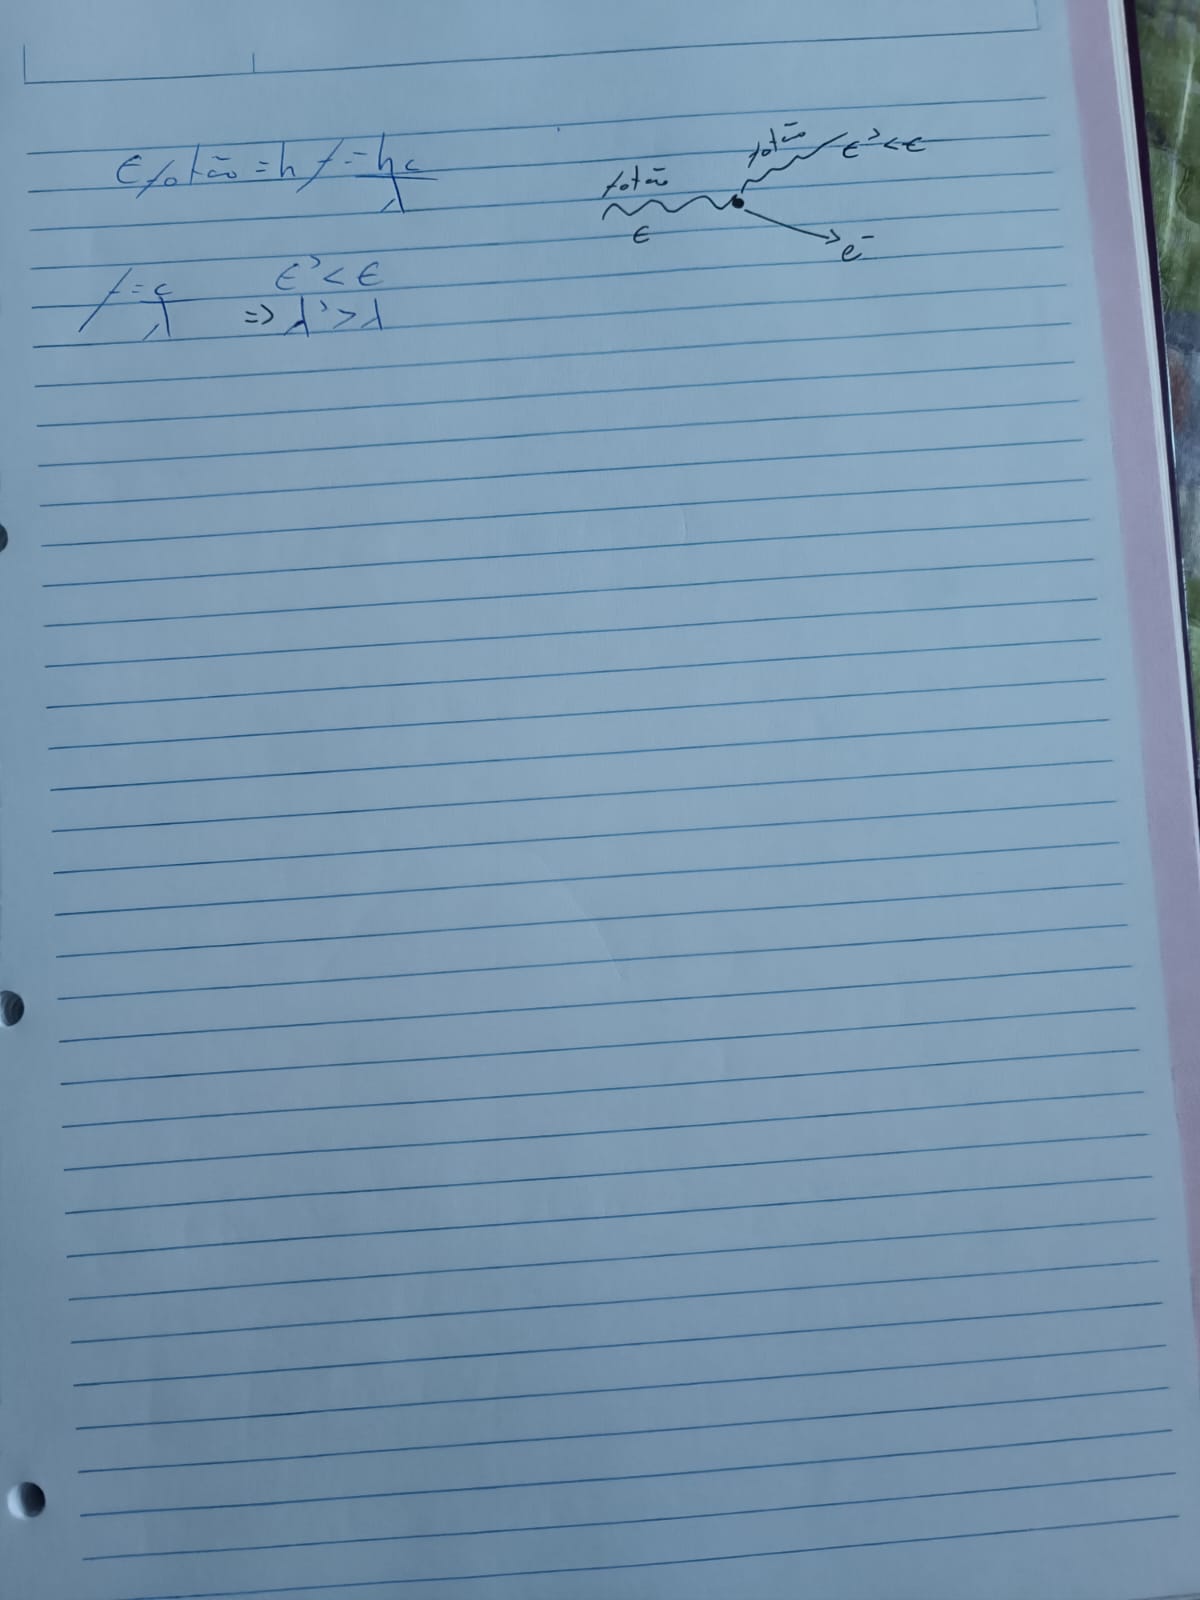 Efotão = hf = hc/λ
f = c/λ E' < E
=> λ' > λ
fotão
E
fotão E' < E
e⁻